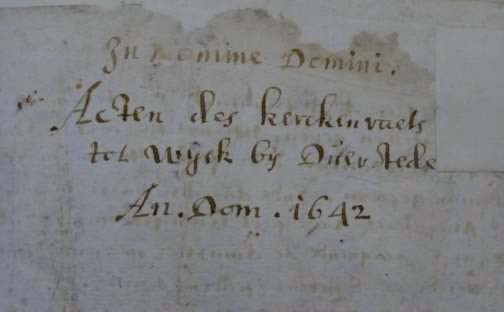 In Nomine Domini.
Acten des kerckenraets
tot Wÿck bÿ Duerstede
An. Dom. 1642